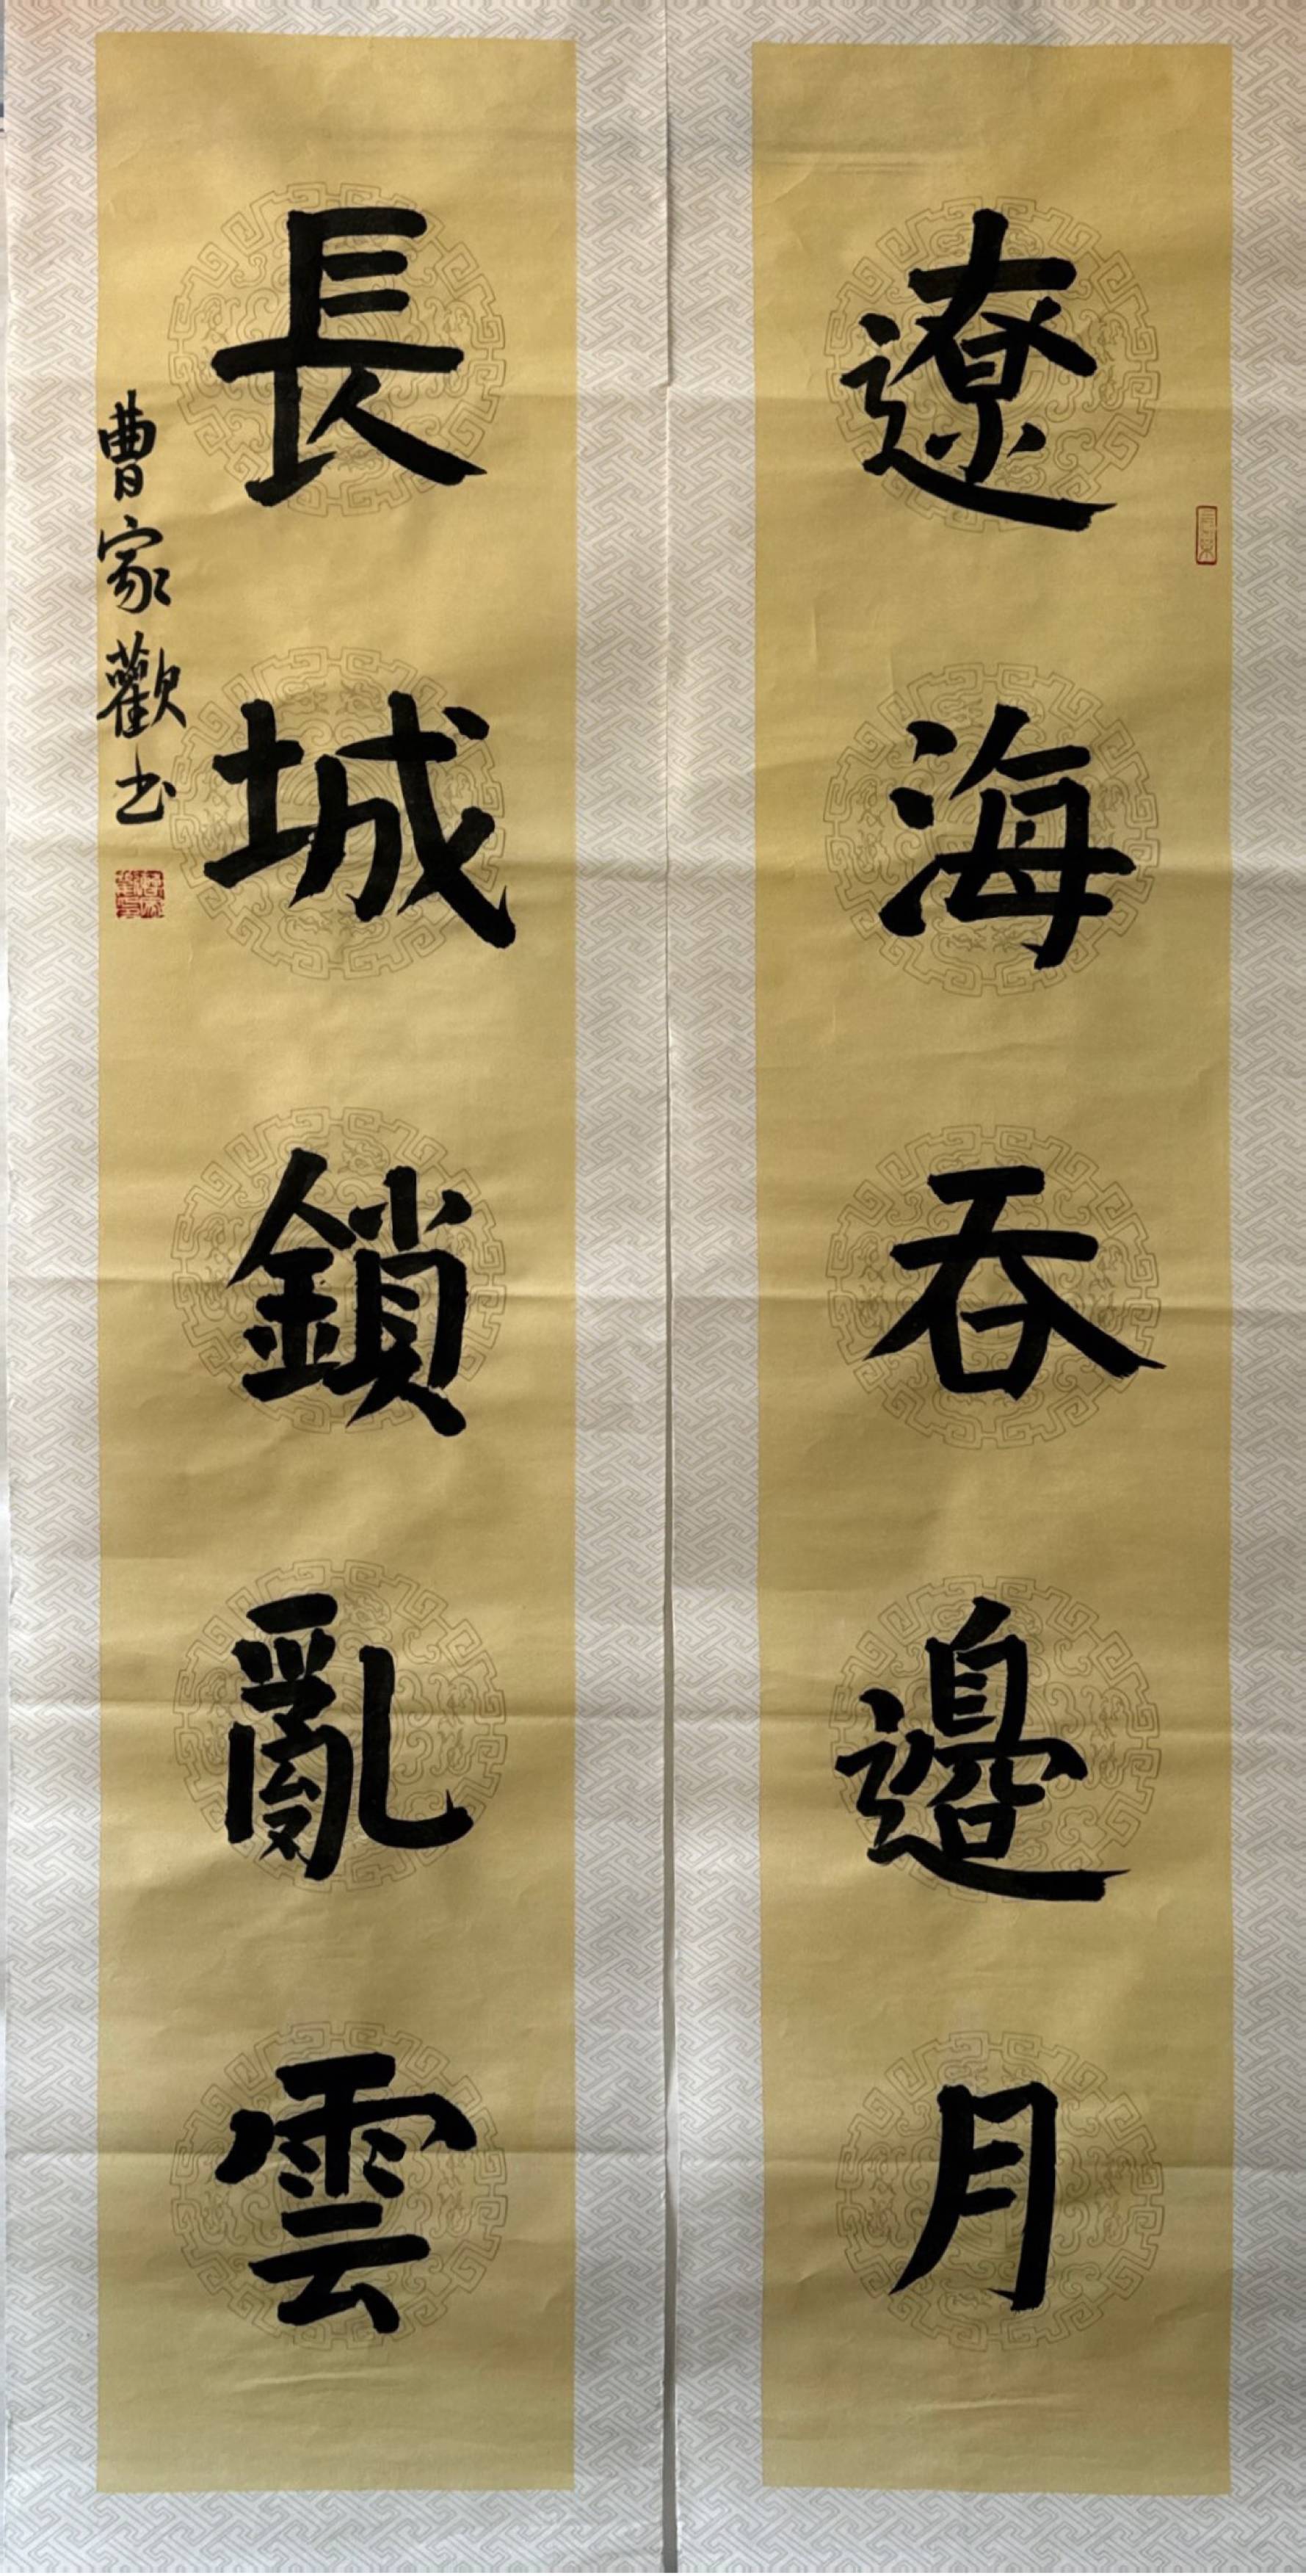 遼海吞邊月
長城鎖亂雲
曹家歡書